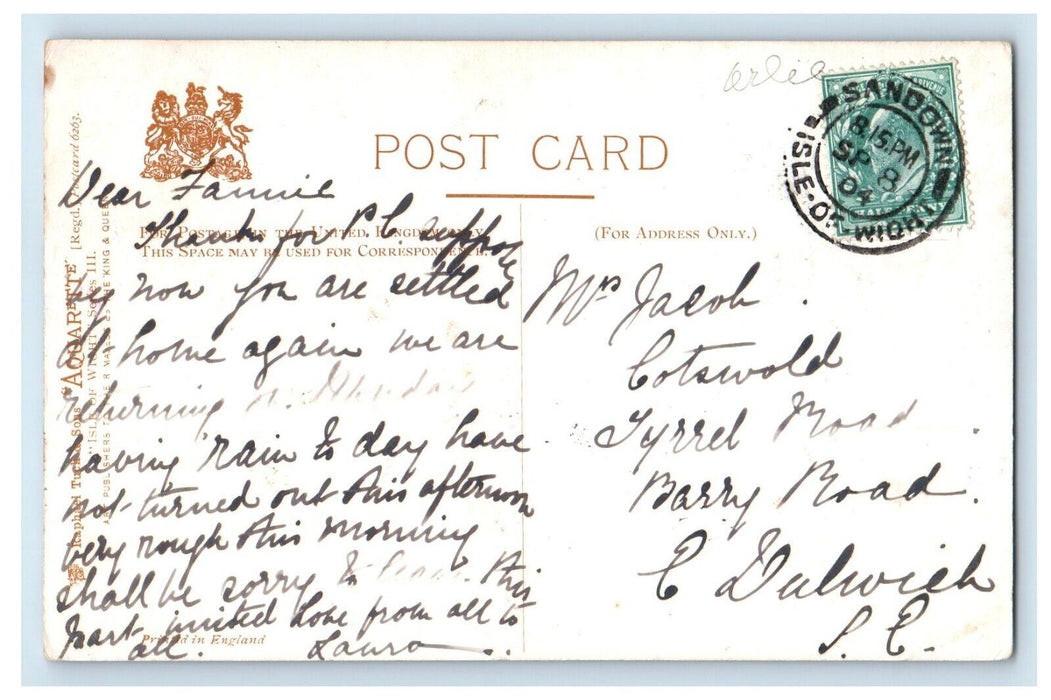 orlie
POST CARD
FOR POSTAGE IN THE UNITED KINGDOM ONLY.
THIS SPACE MAY BE USED FOR CORRESPONDENCE.
(FOR ADDRESS ONLY.)
SANDOWN
ISLE·OF·WIGHT
8.15.PM
SP 8
04
Dear Fannie
Thanks for P.C. suppose
by now you are settled
at home again we are
returning on Monday
having rain to day have
not turned out this afternoon
very rough this morning
shall be sorry to leave this
part united love from all to
all. Laura
Mrs Jacob.
Cotswold
Tyrrel Road
Barry Road.
E Dulwich
S.E.
Raphael Tuck & Sons "AQUARETTE" [Regd.] Postcard 6263.
ISLE OF WIGHT Series III.
ART PUBLISHERS TO THEIR MAJESTIES THE KING & QUEEN
Printed in England